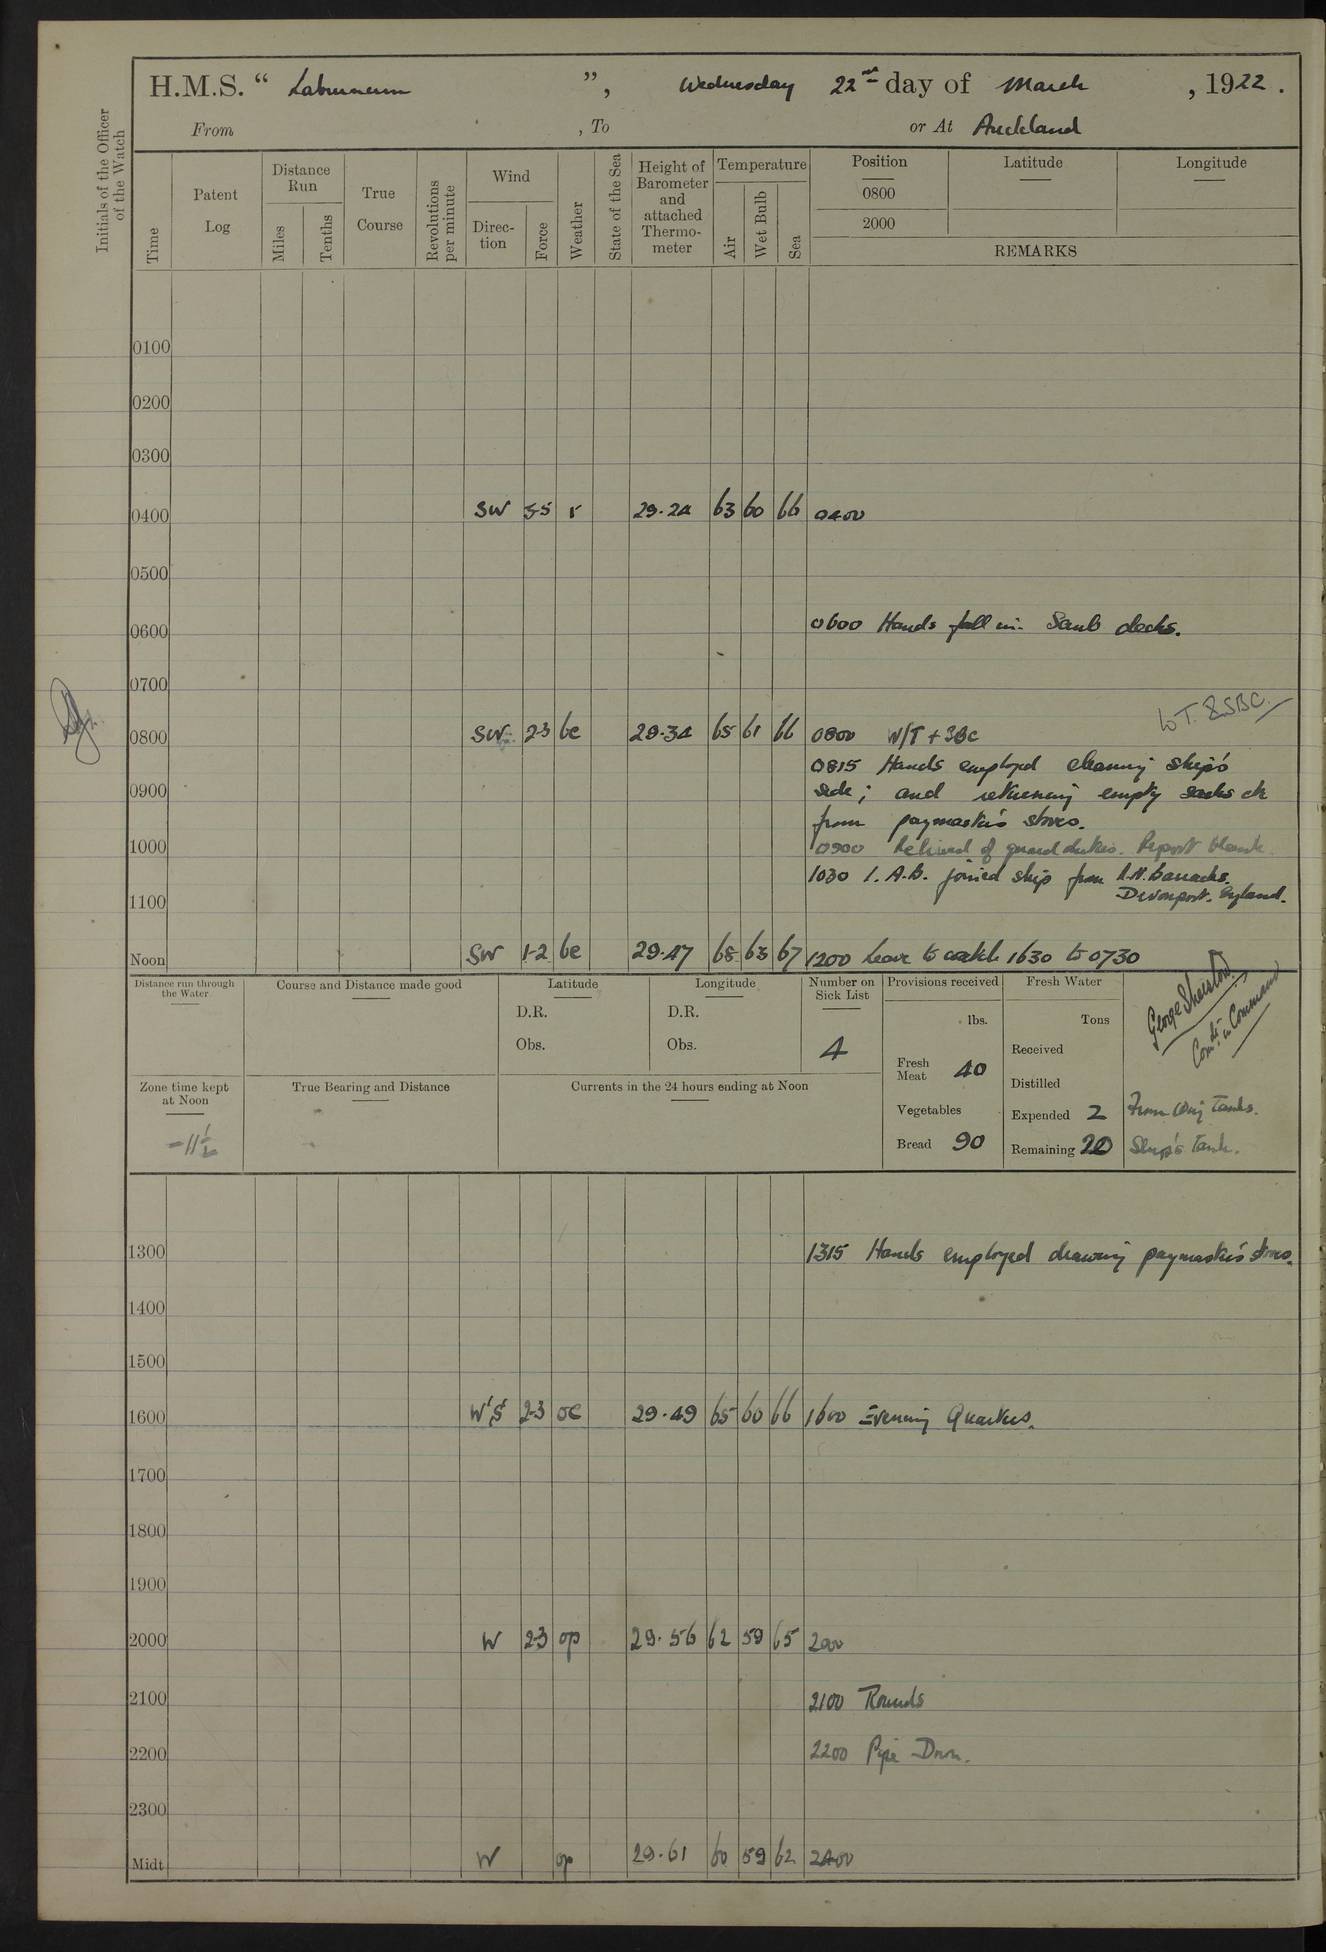 H.M.S. “ Laburnum ”, Wednesday 22nd day of March , 1922.
From , To or At Auckland
Initials of the Officer of the Watch
Time
Patent Log
Distance Run
Miles
Tenths
True Course
Revolutions per minute
Wind
Direction
Force
Weather
State of the Sea
Height of Barometer and attached Thermometer
Temperature
Air
Wet Bulb
Sea
Position Latitude Longitude
0800
2000
REMARKS
0100
0200
0300
0400 SW 5-5 r 29.24 63 60 66 0400
0500
0600 0600 Hands fall in. Scrub decks.
0700
W.T. & SBC.
0800 SW 2-3 bc 29.34 65 61 66 0800 W/T + SBC
0815 Hands employed cleaning ship's
0900 side; and returning empty sacks etc
from paymaster's stores.
1000 0900 Relieved of guard duties. Report blank.
1030 1. A.B. joined ship from R.N. Barracks.
1100 Devonport. England.
Noon SW 1-2 bc 29.47 68 63 67 1200 Leave to watch 1630 to 0730
Distance run through the Water
Course and Distance made good
Latitude
D.R.
Obs.
Longitude
D.R.
Obs.
Number on Sick List
4
Provisions received
lbs.
Fresh Meat 40
Vegetables
Bread 90
Fresh Water
Tons
Received
Distilled
Expended 2 From Orig Tanks.
Remaining 20 Ship's Tank.
George
in Command
Zone time kept at Noon
-11½
True Bearing and Distance
Currents in the 24 hours ending at Noon
1300 1315 Hands employed drawing paymaster's stores.
1400
1500
1600 W'S' 2-3 oc 29.49 65 60 66 1600 Evening Quarters.
1700
1800
1900
2000 W 2-3 op 29.56 62 59 65 2000
2100 2100 Rounds
2200 2200 Pipe Down.
2300
Midt. W op 29.61 60 59 62 2400